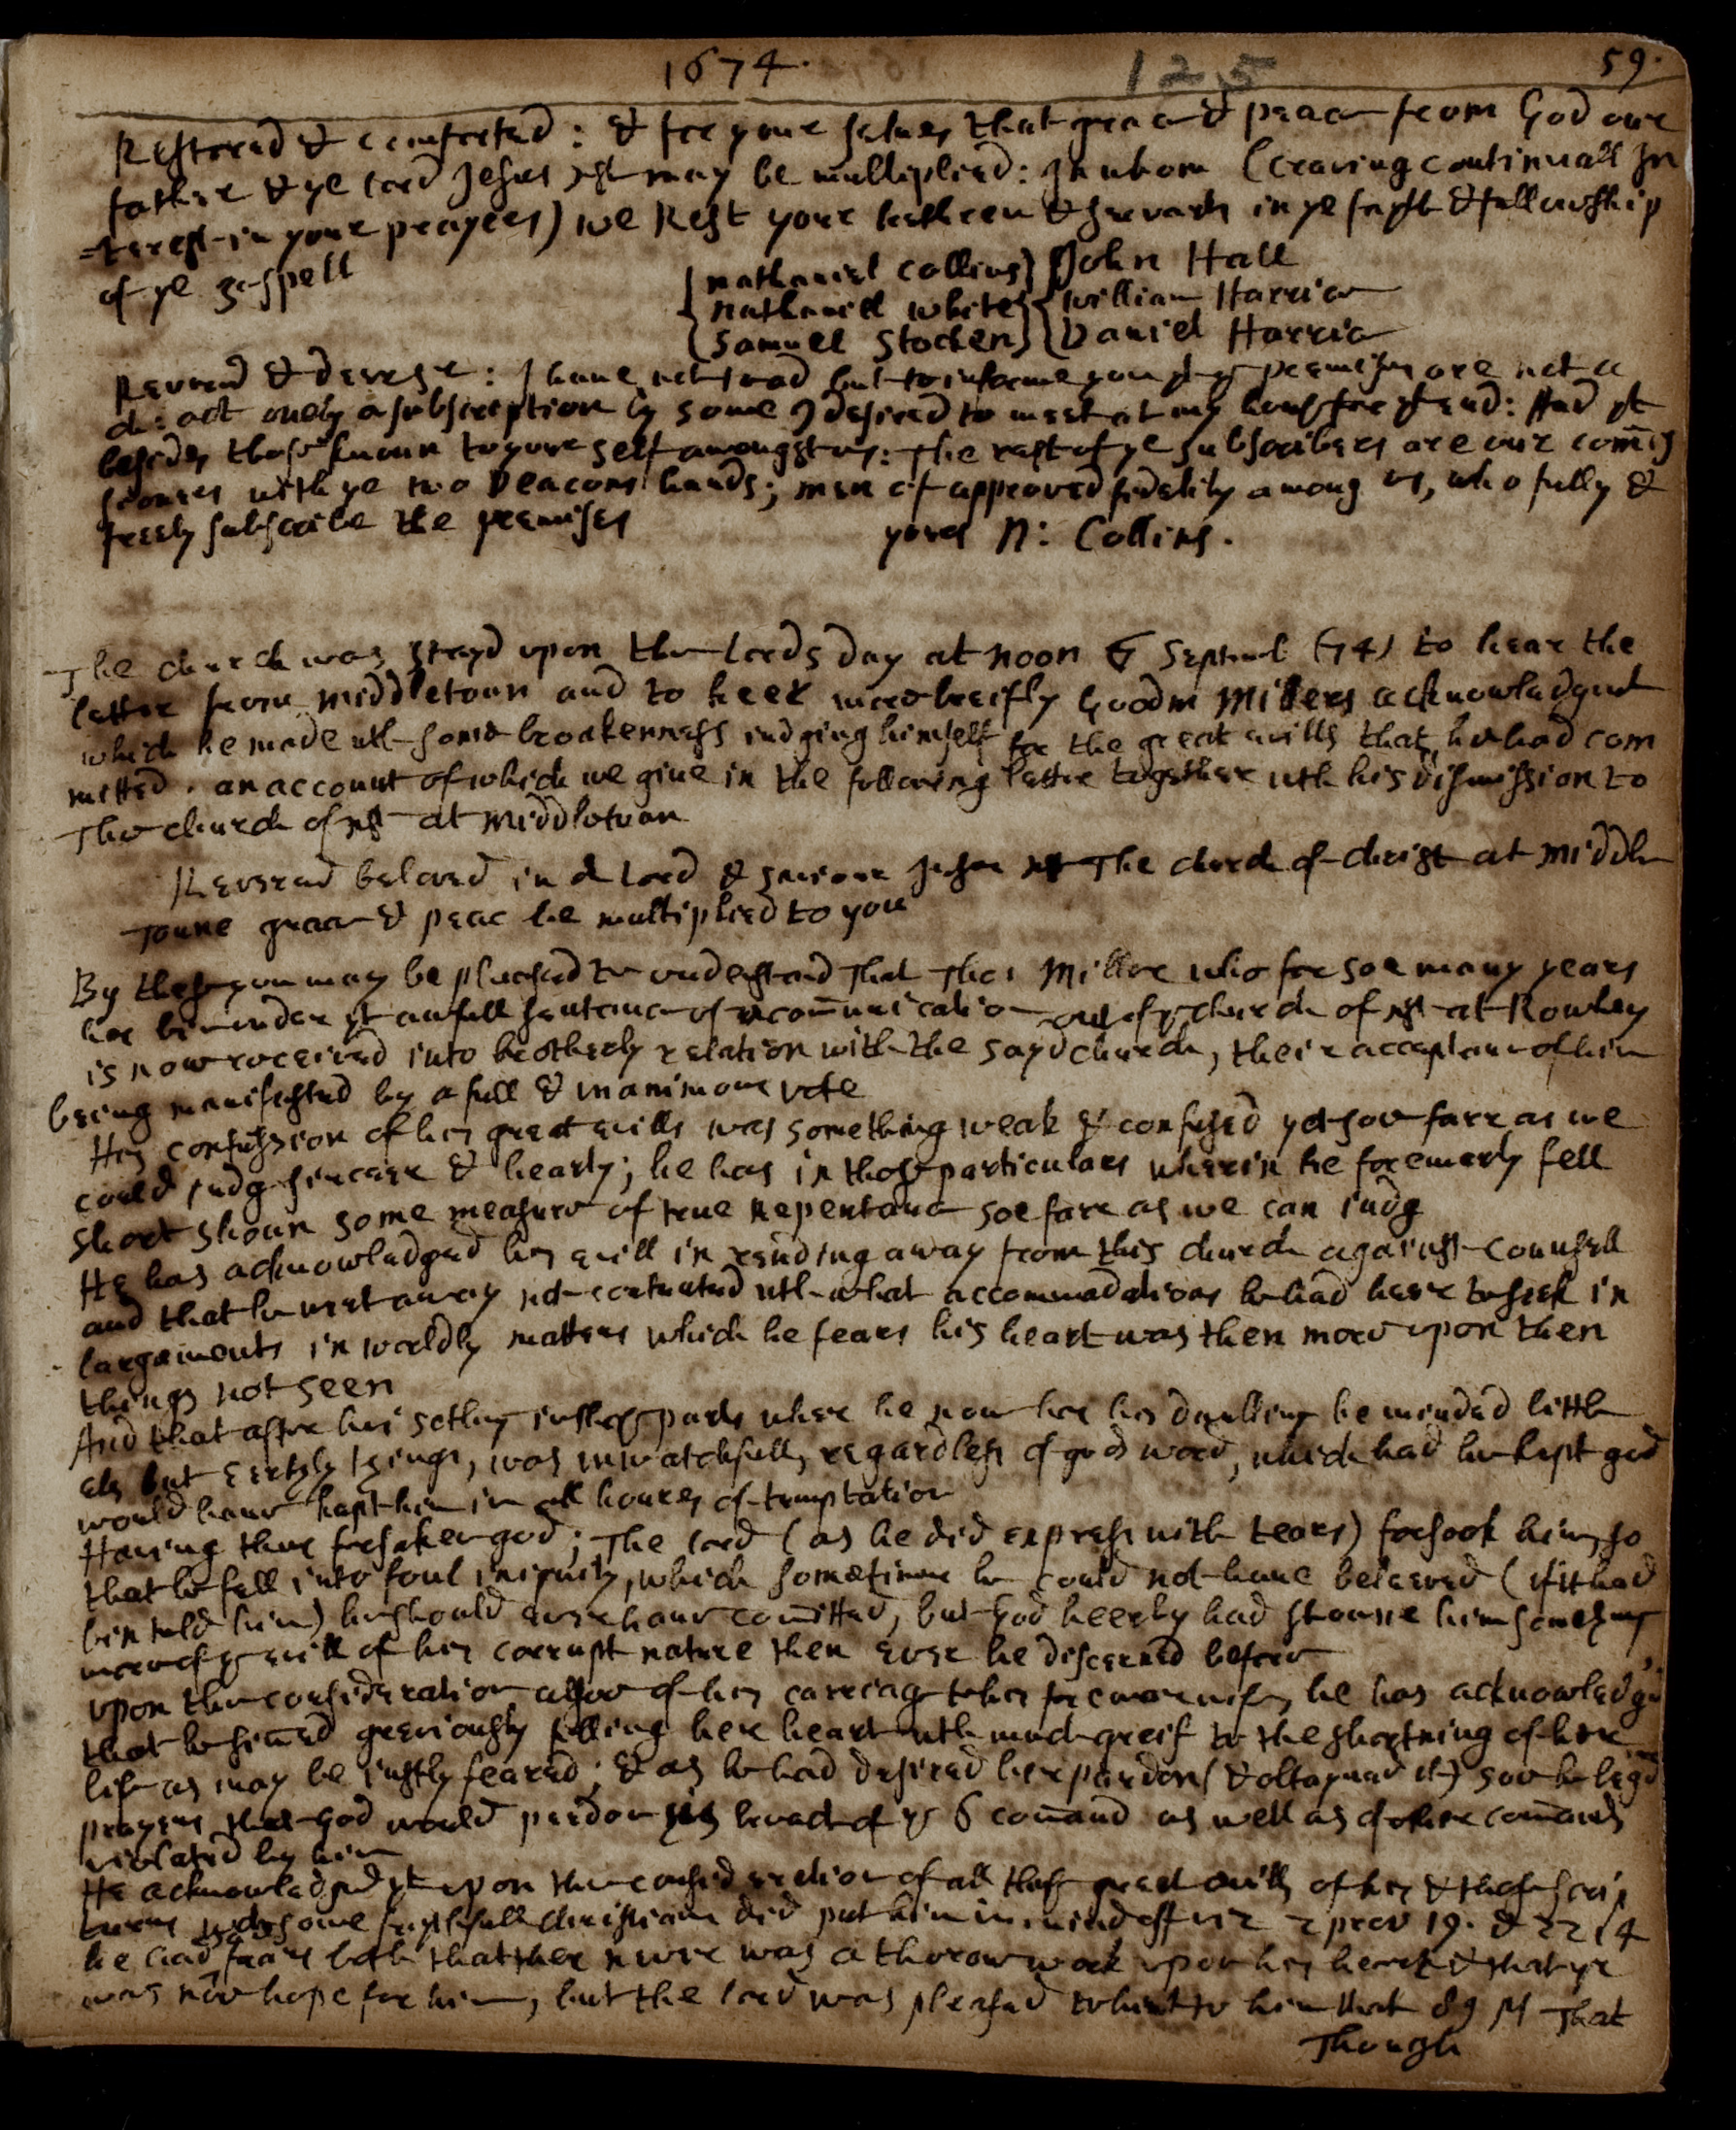 1674. 125 59.
Restored & comforted: & for your selues that grace & peace from God our
father & ye lord Jesus xst may be multiplied: In whom (craving continuall In
=terest in your prayers) we Rest your brethren & servants in ye fayth & fellowship
of ye gospell
nathaniel Collins John Hall
nathaniell white william Harris
Samuel Stocken Daniel Harris
Reverend & deere Sr: I haue not read but to informe you yt ye premises are not a
act onely a subscription by some I desired to meet at my house for yt end: And yt
besides those known to your self amongst us: The rest of ye subscribers are our comis
sioners with ye two Deacons hands; men of approved fidelity among us, who fully &
freely subscribe the premises yours N: Collins.
The church was stayd upon the lords day at noon 6 Septemb (74) to hear the
letter from middletown and to heer more breifly Goodm Millers acknowledgmt
which he made wth some brokenness iudging himself for the great euills that he had com
mitted. an account of which we giue in the following letter together wth his dismission to
The church of xst at middletown
Reverend beloved in or Lord & saviour Jesus xst The church of christ at middle
towne grace & peac be multiplied to you
By these you may be pleased to understand That Tho: Miller who for soe many years
has bin under yt awfull sentence of excomunication out of ye church of xst at Rowley
is now received into brotherly relation with the sayd church, their acceptance of him
being manifested by a full & unanimous vote
His confession of his great euills was something weak & confused yet soe farr as we
could judg sincere & hearty; he has in those particulars wherin he formerly fell
short shown some measure of true repentance soe fare as we can iudg
He has acknowledged his euill in rending away from this church against counsell
and that he went away not contented wth what accommodations he had here to seek in
largements in worldly matters which he fears his heart was then more upon then
things not seen
And that after his setling in these parts where he now has his dwelling he minded little
els but earthly things, was unwatchfull, regardless of gods word, which had he kept god
would haue kept him in all houres of temptation
Having thus forsaken god; The lord (as he did express with tears) forsook him, so
that he fell into foul iniquity, which sometimes he could not haue beleeved (if it had
bin told him) he should ever haue comitted, but God heerby had showne him something
more of ye euill of his corrupt nature then ever he discerned before
upon the consideration allsoe of his cariag to his former wife, he has acknowledged
that he sinned greviously filling her heart wth much greif to the shortning of her
life as may be iustly feared; & as he had desired her pardon (& obtayned it) soe he begd
prayers that God would pardon his breach of ye 6 comand as well as other comands
violated by him
He acknowledged yt upon the consideration of all these great euills of his & those scrip
tures wch some faythfull christians did put him in mind off viz 2 prov 19. & 22 14
he had fears both that ther never was a thorow work upon his heart & that yr
was now hope for him, but the lord was pleased to hint to him that 89 ps That
Though